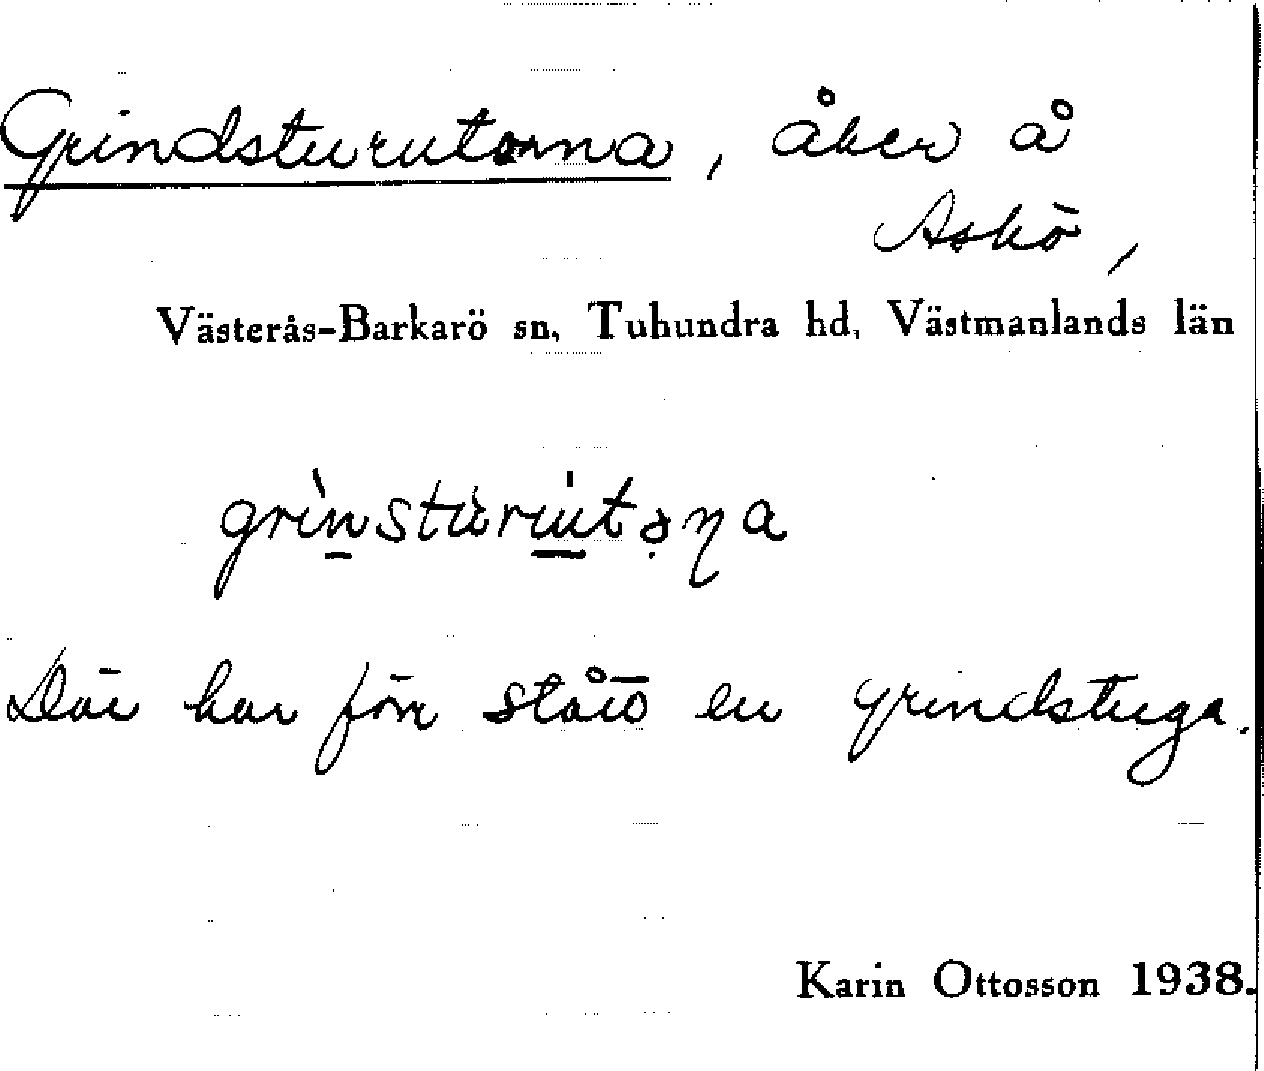 Grindsturutorna, åker å
Askö,
Västerås-Barkarö sn, Tuhundra hd, Västmanlands län
grinsturutona
Där har förr stått en grindstuga.
Karin Ottosson 1938.